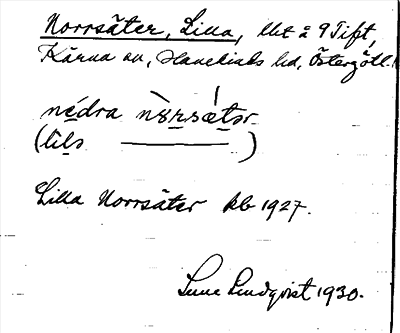 Norrsäter, Lilla, lht å 9 Tift,
Kärna sn, Hanekinds hd, Östergötl.
nédra nòrsǽtər
(lila ———)
Lilla Norrsäter kb 1927.
Sune Lindqvist 1930.